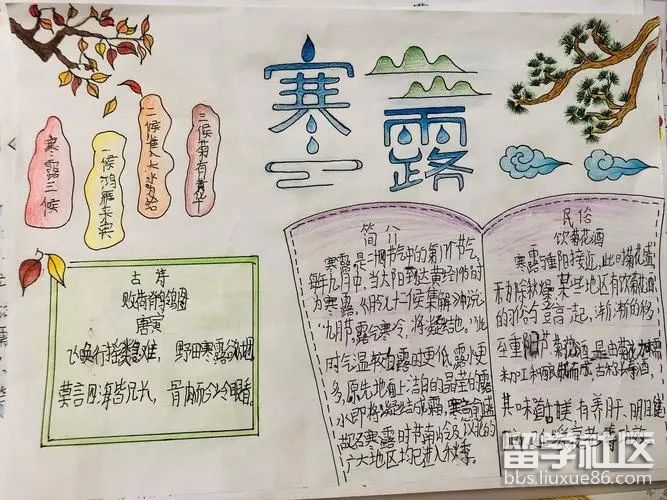 寒露
寒露三候
一候鸿雁来宾
二候雀入大水为蛤
三候菊有黄华
古诗
败荷脊令图
唐寅
飞唤行摇类急难，野田寒露欲
莫言四海皆兄长，骨肉而今冷眼看。
简介
寒露是二十四节气中的第17个节气，
每年九月中，当太阳到达黄经195时
为寒露《月令七十二候集解》中说
"九月节，露气寒冷，将凝结也。"此
时气温较白露时更低，露水更
多，原先地面上洁白的晶莹的露
水即将凝结成霜，寒意
寒露时节南岭及以北的
广大地区均已进入秋季。
民俗
饮菊花酒
寒露重阳接近，此时菊花盛
为除秋燥，某些地区有饮菊花酒
的习俗，登高一起，渐渐的移
至重阳节。菊花酒是由菊花
加工和酿制而成，古称
其味道 有养肝、明目、健
留学社区
bbs.liuxue86.com